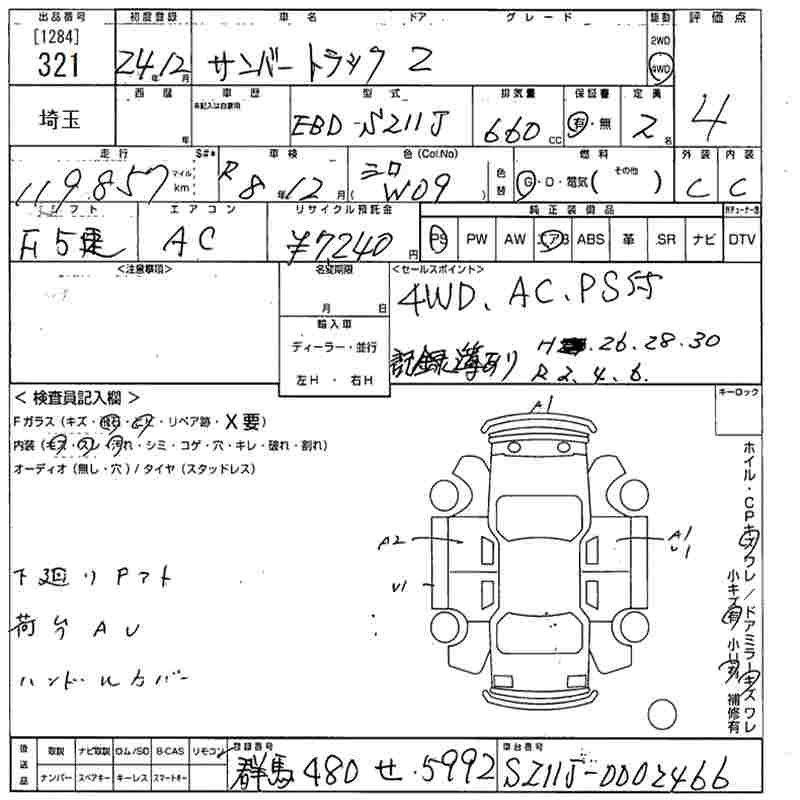 出品番号 初度登録 車名 ドア グレード 駆動 評価点
[1284] 321 24年12月 サンバートラック Z 2WD 4WD 4
埼玉 西暦 年 車歴 未記入は自家用 型式 EBD-S211J 排気量 660cc 保証書 有・無 定員 2名
走行 119,857 マイル km S#* 車検 R8年12月 色(Col.No) シロ W09 色替 燃料 G・D・電気( その他 ) 外装 C 内装 C
シフト F5速 エアコン AC リサイクル預託金 ¥7240円 純正装備品 PS PW AW エアB ABS 革 SR ナビ DTV
<注意事項> 名変期限 <セールスポイント>
月 日 4WD、AC、PS
輸入車
ディーラー・並行 記録簿あり H .26.28.30
左H・右H R2.4.6.
< 検査員記入欄 > キーロック
Fガラス(キズ・飛石・ ・リペア跡・X要)
内装( ・スレ・汚れ・シミ・コゲ・穴・キレ・破れ・割れ)
オーディオ(無し・穴)/タイヤ(スタッドレス)
A1
A2 A1 U1
U1
下廻りPアト
荷台AU
ハンドルカバー
ホイル・CPキズワレ/ドアミラーキズワレ
小キズ有 小U有 補修有
後送品 取説 ナビ取説 ロム/SD B-CAS リモコン 登録番号 車台番号
ナンバー スペアキー キーレス スマートキー 群馬 480 せ 5992 S211J-0002466